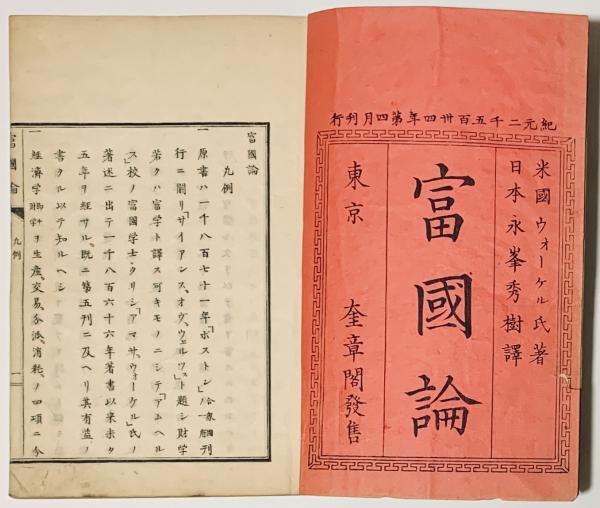 紀元二千五百卅四年第四月刊行
米國 ウォーケル氏 著
日本 永峯秀樹 譯
富國論
東京 奎章閣發售
富國論
凡例
一 原書ハ一千八百七十一年「ボストン」ノ刊
行ニ關リ「サイアンス、オヴ、ウェルツス」ト題シ財学
若クハ富学ト譯ス可キモノニシテ「アムヘル
ス」校ノ富國学士タリシ「アマサ、ウォーケル」氏ノ
著述ニ出テ一千八百六十六年著書以来未タ
五年ヲ経サルニ既ニ第五刊ニ及ヘリ其有益ノ
書タル以テ知ルヘシ
一 経済学ヲ生産、交易、分派、消耗、ノ四項ニ分
富國論 凡例 一